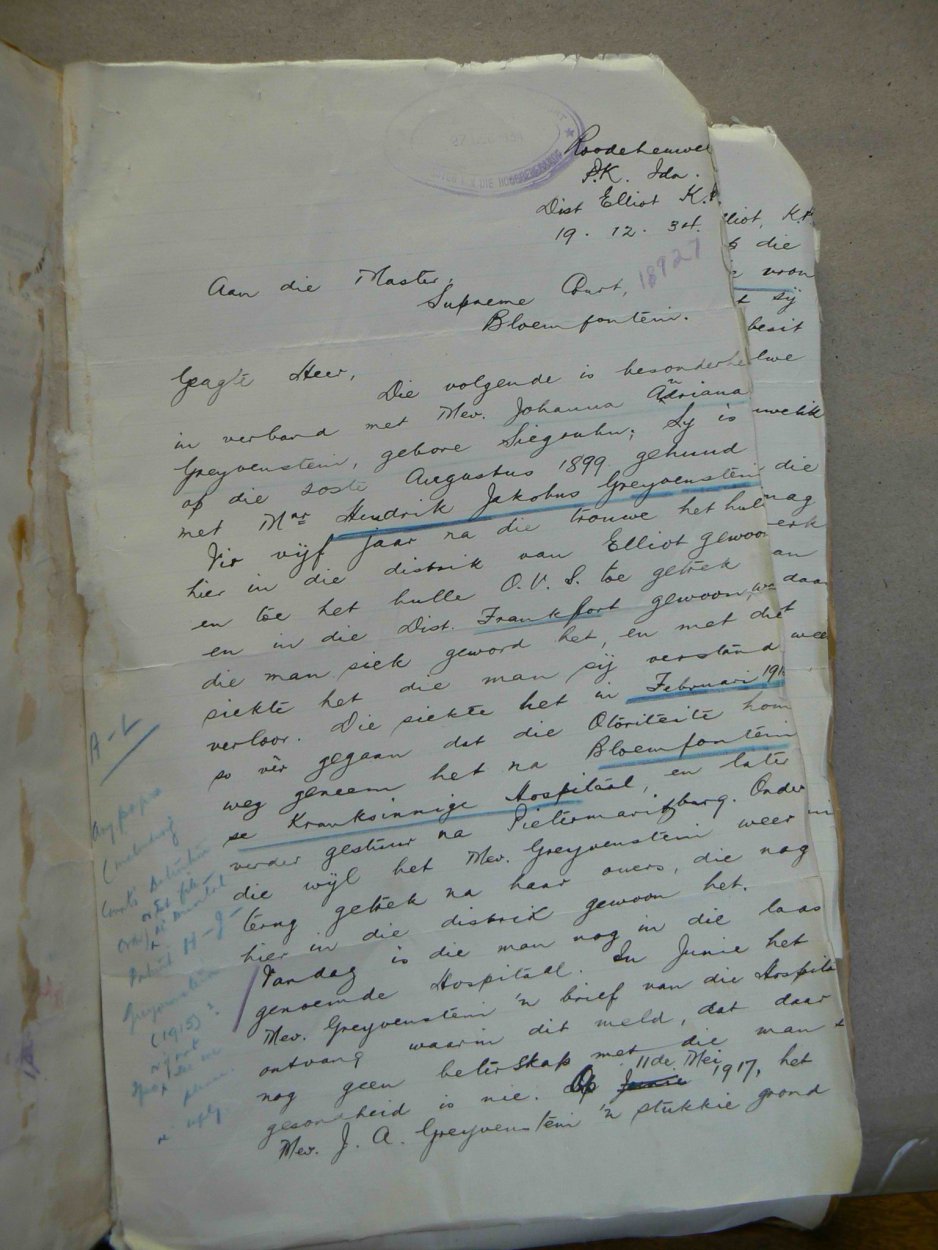 27 DEC 1934
Roodeheuwel
P.K. Ida.
Dist Elliot K.P.
19 . 12 . 34.
18927
Aan die Master,
Supreme Court,
Bloemfontein.
Geagte Heer,
Die volgende is besonderhe
in verband met Mev. Johanna Adriana
Greyvenstein, gebore Siegruhn; Sy is
op die 20ste Augustus 1899 gehuud
met Mnr Hendrik Jakobus Greyvenstein
Vir vijf jaar na die trouwe het hul
hier in die distrik van Elliot gewoon
en toe het hulle O.V.S. toe getrek
en in die Dist. Frankfort gewoon, wa
die man siek geword het, en met die
siekte het die man sij verstand
verloor. Die siekte het in Februari 191
so vêr gegaan dat die Otoriteite hom
weg geneem het na Bloemfontein
se Kranksinnige Hospitaal, en later
verder gestuur na Pietermaritzburg. Onder
die wijl het Mev. Greyvenstein weer
terug getrek na haar ouers, die nog
hier in die distrik gewoon het.
Vandag is die man nog in die laas
genoemde Hospitaal. In Junie het
Mev. Greyvenstein 'n brief van die Hospita
ontvang waarin dit meld, dat daar
nog geen beterskap met die man s
gesondheid is nie. Op Junie 11de Mei 1917, het
Mev. J. A. Greyvenstein 'n stukkie grond
lliot, K.P.
die
vrou
sy
besit
twe
welk
die
nag
erk
an
daar
wee
A-L
any papers
(including
H-J-
Greyvenstein
(1915)?